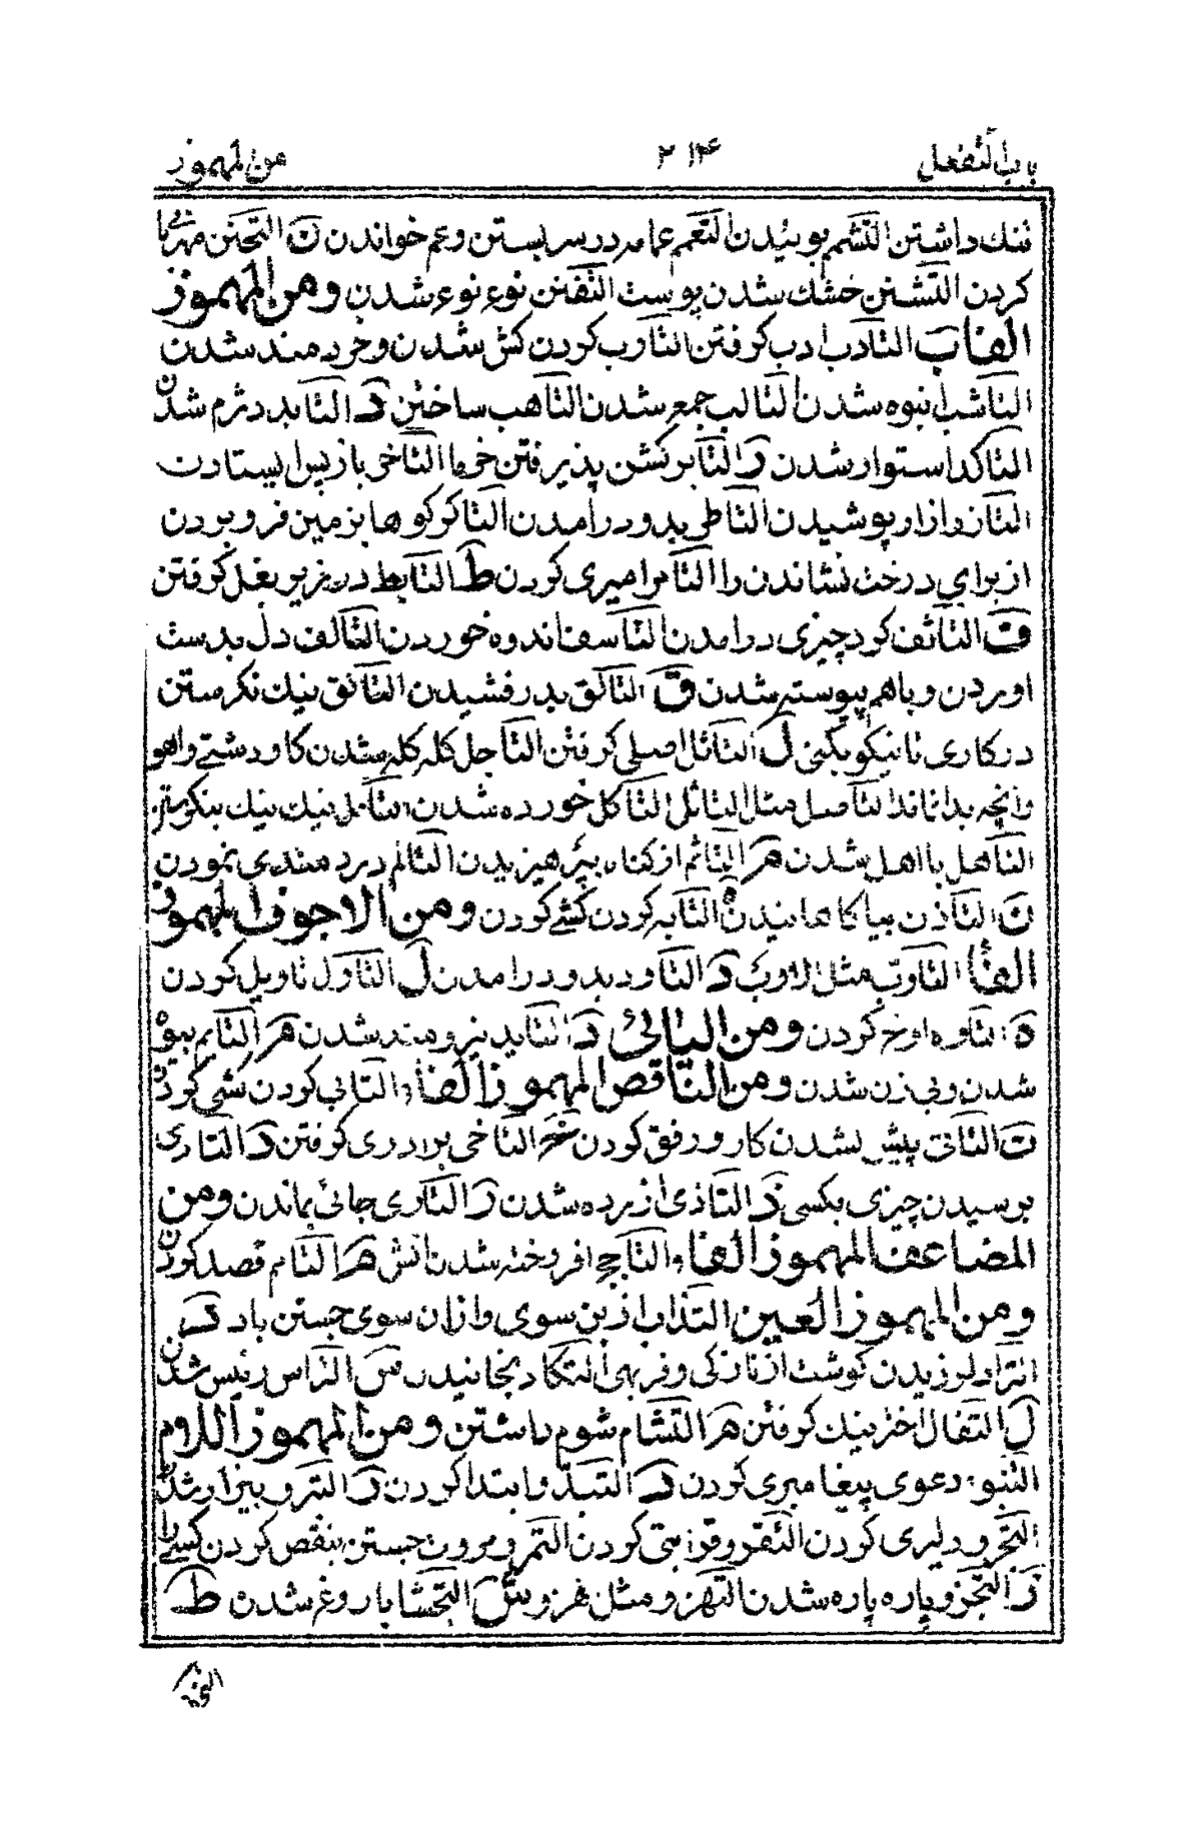 باب التفعل ۲۱۴ من المهموز
ننك داشتن التشمم بوئیدن التعمم عمامه در سر بستن و عم خواندن ن التحنن مهربانی
کردن التشنن خشك شدن پوست التفنن نوع نوع شدن ومن المهموز
الفاب التادب ادب کرفتن التارب کردن کش شدن و خردمند شدن
التاشب انبوه شدن التالب جمع شدن التاهب ساختن د التابد دژم شدن
التاکد استوار شدن ر التابر کشن پذیرفتن خرما التاخر باز پس ایستادن
التازر ازار پوشیدن التاطر بدو درامدن التاکر کوها بزمین فرو بردن
از برای درخت نشاندن را التامر امیری کردن ط التابط در زیر بغل کرفتن
ف التاثف کرد چیزی درامدن التاسف اندوه خوردن التالف دل بدست
اوردن و باهم پیوسته شدن ق التالق بدرفشیدن التانق نیك نکرستن
در کاری تا نیکو بکنی ل التاثل اصلی کرفتن التاجل کله کله شدن کاو دشتی واهو
وانچه بدان ماند التاصل مثل التاثل التاکل خورده شدن التامل نیك نیك بنکرستن
التاهل با اهل شدن م التاثم از کناه بپرهیزیدن التالم دردمندی نمودن
ن التاذن بیاکاهانیدن ه التابه کردن کشی کردن ومن الاجوف المهموز
الفا التاوب مثل الاوب د التاود بدو درامدن ل التاول تاویل کردن
ه التاوه اوخ کردن ومن الیائی د التاید نیرومند شدن م التایم بیوه
شدن و بی زن شدن ومن الناقص المهموز الفاء التابی کردن کشی کردن
ت التاتی پیش شدن کار و رفق کردن خ التاخی برادری کرفتن د التادی
برسیدن چیزی بکسی ذ التاذی ازرده شدن ر التاری جائی بماندن ومن
المضاعف المهموز الفاء التاجج افروخته شدن اتش م التامم قصد کردن
ومن المهموز العین التذاب ازین سوی وازان سوی جستن باد د
التراد لرزیدن کوشت از نازکی و فربهی التکاد بخانیدن س التراس رئیس شدن
ل التفال اختر نیك کرفتن م التشام شوم داشتن ومن المهموز اللام
التنبو دعوی پیغامبری کردن د التبدو ابتدا کردن ر التبرو بیزار شدن
التجرو دلیری کردن التقرو قرائتی کردن التمرو مروت جستن بنقص کردن کسی را
ز التجزو پاره پاره شدن التهزو مثل هزو ش التجشا باروغ شدن ط